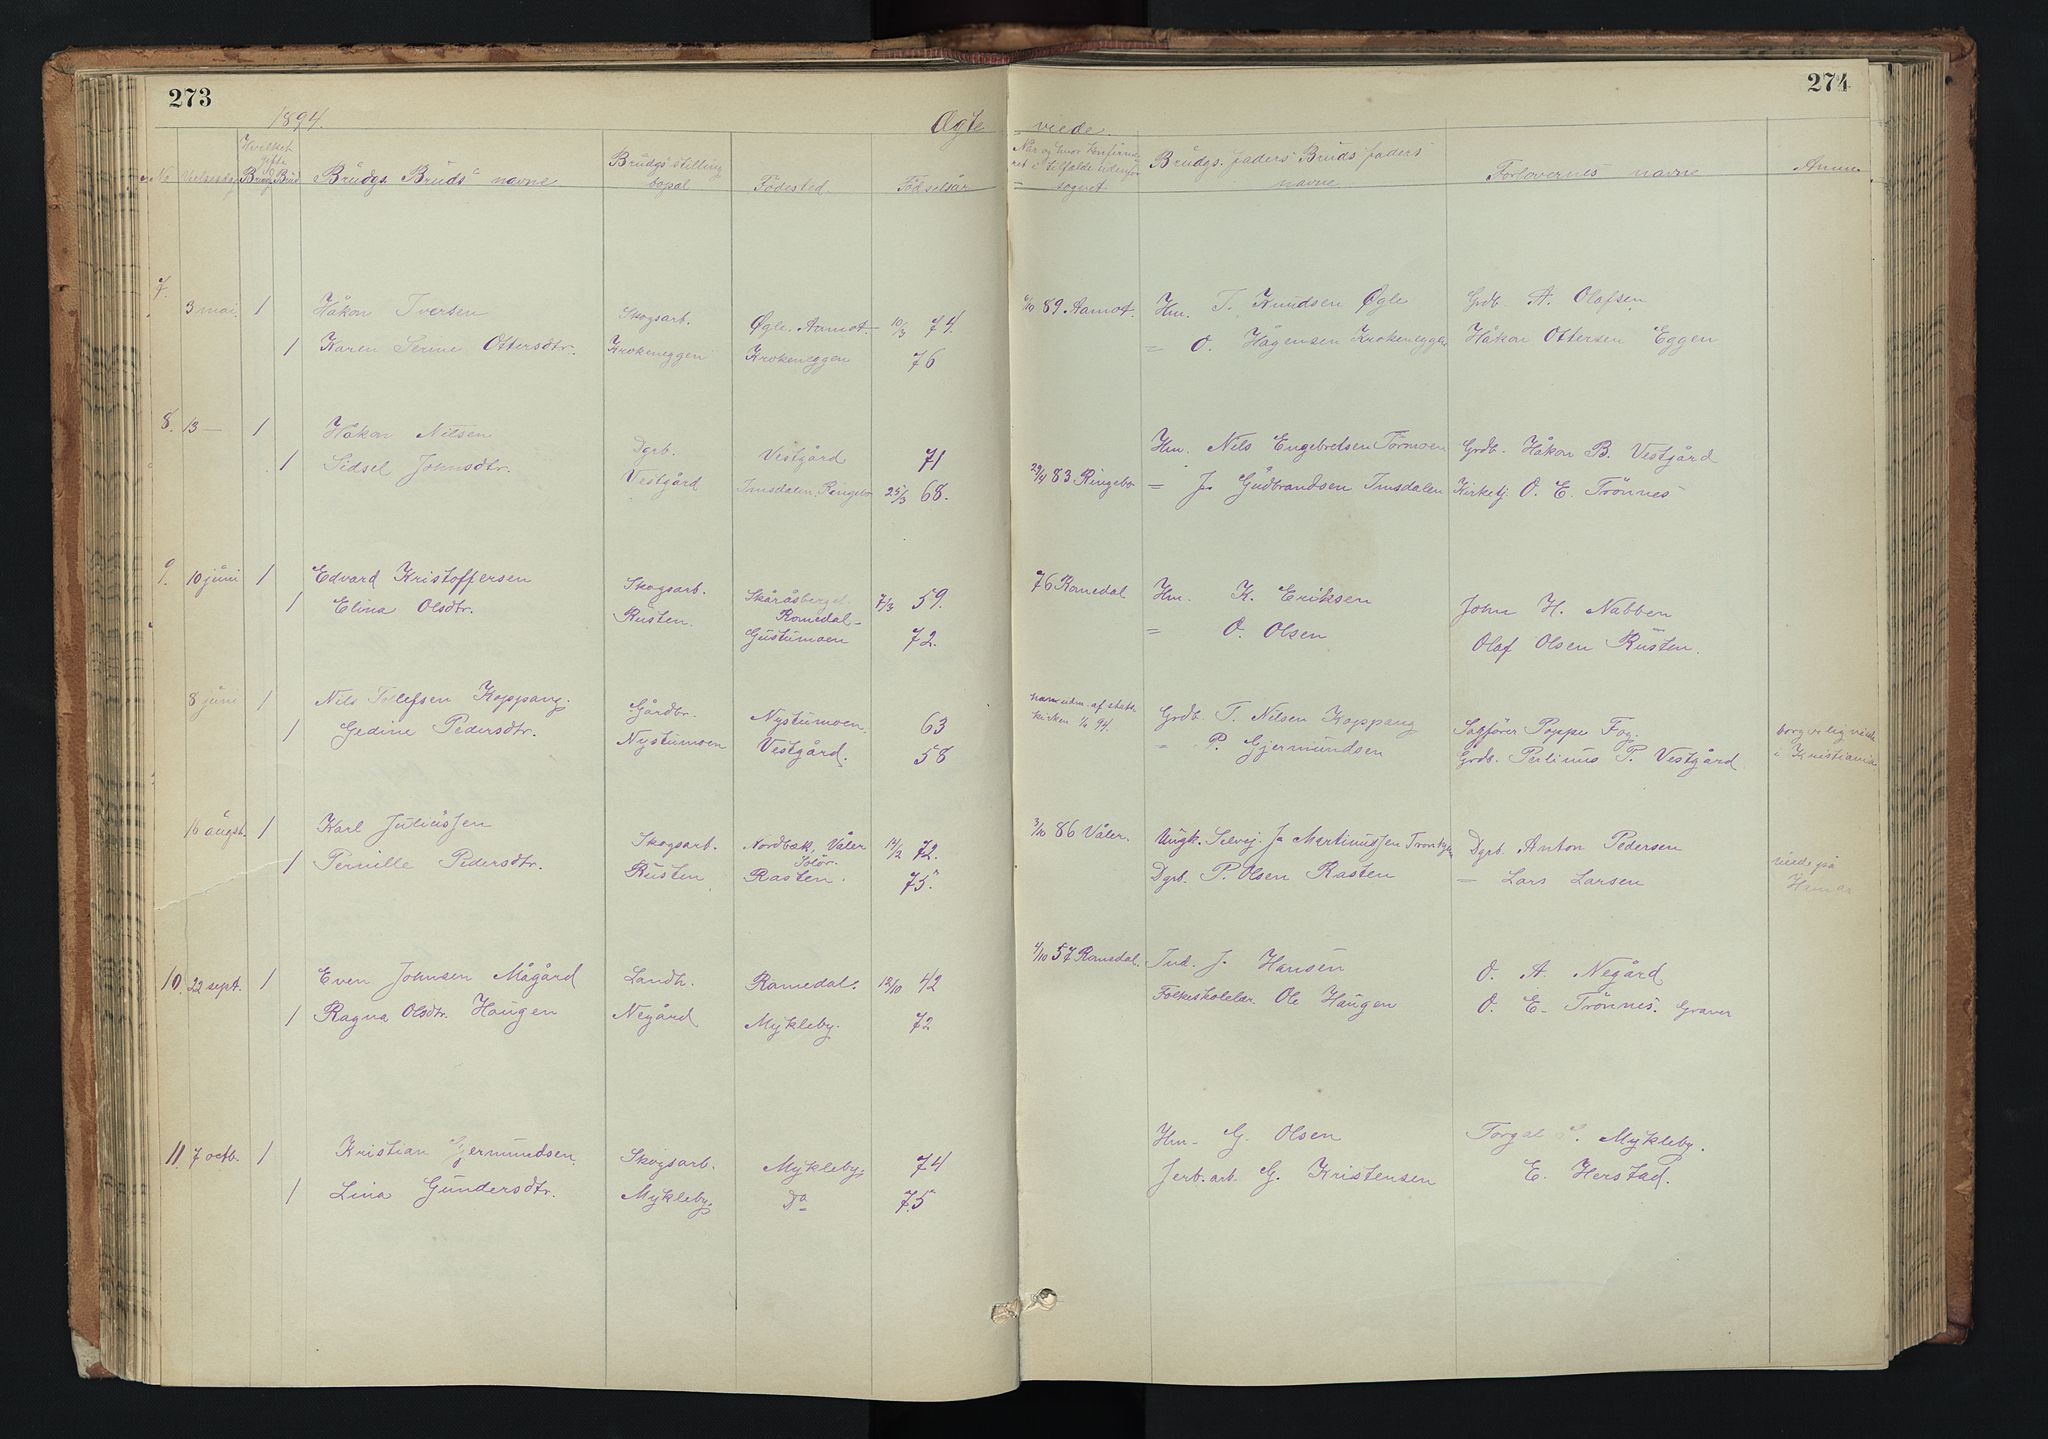 273
274
1894.
Ægte viede.
No Vielsesdag Hvilket gifte Brudg Brud Brudgs. Bruds navne Brudgs stilling bopæl Fødested Fødselsår
Når og hvor konfirmeret i tilfælde udenfor sognet Brudgs. faders Bruds faders navne Forlovernes navne Anm.
7. 3 mai. 1 Håkon Iversen Skogsarb. Øgle, Aamot 10/3 74. 6/10 89. Aamot. Hm. I. Knudsen Øgle Grdb. A. Olafsen
1 Karen Serine Ottersdtr. Krokeneggen Krokeneggen 76 = O. Hågensen Krokeneggen Håkon Ottersen Eggen
8. 13 — 1 Håkon Nilsen Dgrb. Vestgård 71 Hm. Nils Engebretsen Tørmoen Grdb. Håkon B. Vestgård
1 Sidsel Johnsdtr. Vestgård Imsdalen, Ringebo 25/3 68. 29/4 83 Ringebo = J. Gudbrandsen Imsdalen Kirketj. O. E. Trönnes
9. 10 juni 1 Edvard Kristoffersen Skogsarb. Skåråsberget Romedal 7/3 59. 76 Romedal Hm. K. Eriksen John H. Nabben
1 Elina Olsdtr. Rusten. Gustumoen 72. = O. Olsen Olaf Olsen Rusten.
8 juni 1 Nils Tollefsen Koppang. Gårdbr. Nystumoen 63 udm. af stats kirken 94. Grdb. T. Nilsen Koppang Sagfører Poppe Fog. borgerlig viede i Kristiania
1 Gedine Pedersdtr. Nystumoen Vestgård. 58 " P. Gjermundsen Grdb. Perlinus P. Vestgård
16 augst. 1 Karl Juliussen Skogsarb. Nordbæk, Våler Solør 14/2 72. 3/10 86 Våler. Ungk. Selvej. J. Martinussen Dgrb Anton Pedersen viede på Hamar
1 Pernille Pedersdtr. Rusten Rasten. 75. Dgrb. P. Olsen Rasten = Lars Larsen
10. 22 sept. 1 Even Johnsen Mågård Landh. Romedal. 12/10 42 4/10 57 Romedal. Ind. J. Hansen O. A. Negård
1 Ragna Olsdtr. Haugen Negård Mykleby. 72 Folkeskolelær. Ole Haugen O. E. Trönnes. Graver
11. 7 octb. 1 Kristian Gjermundsen Skogsarb. Mykleby, 74 Hm. G. Olsen Torgal Mykleby.
1 Lina Gundersdtr. Mykleby, Do 75 Jerb.arb G. Kristensen E. Herstad.